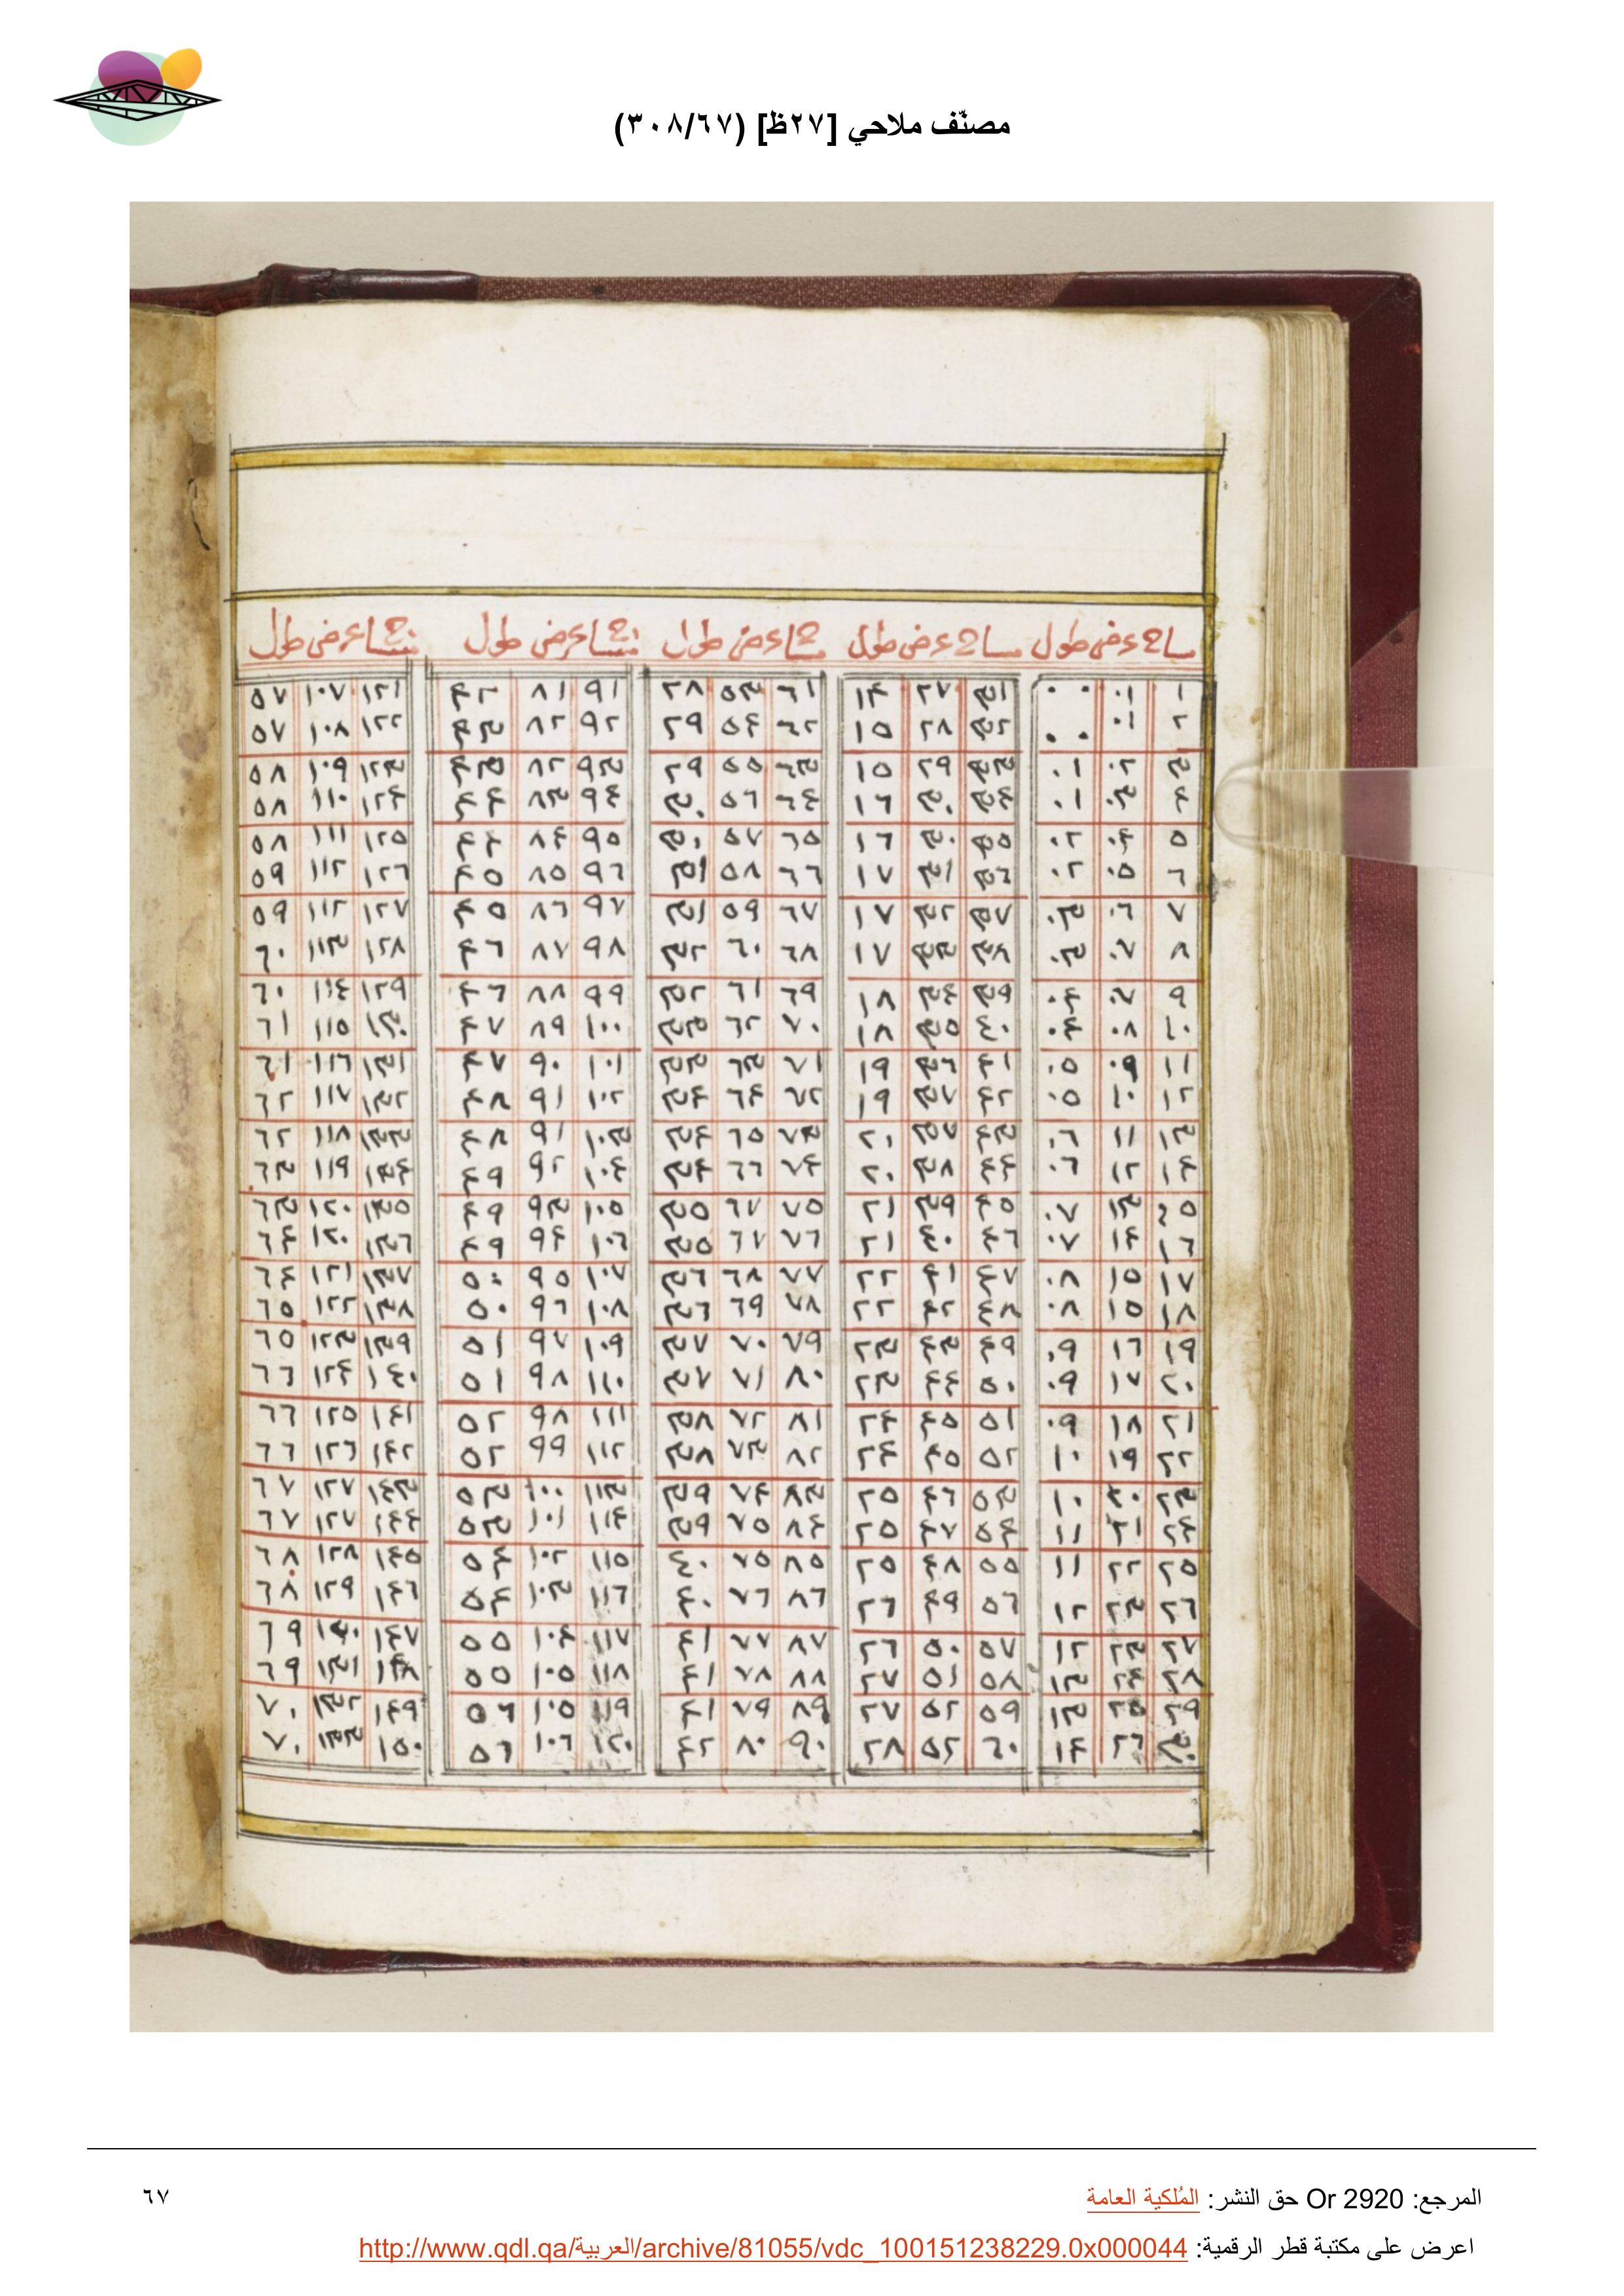 مصنّف ملاحي [٢٧ظ] (٣٠٨/٦٧)
مسا؏ عرض طول مسا؏ عرض طول مسا؏ عرض طول مسا؏ عرض طول مسا؏ عرض طول
١ ٠١ ٠٠ ٣١ ٢٧ ١٤ ٦١ ٥٣ ٢٨ ٩١ ٨١ ٤٢ ١٢١ ١٠٧ ٥٧
٢ ٠١ ٠٠ ٣٢ ٢٨ ١٥ ٦٢ ٥٤ ٢٩ ٩٢ ٨٢ ٤٣ ١٢٢ ١٠٨ ٥٧
٣ ٠٢ ٠١ ٣٣ ٢٩ ١٥ ٦٣ ٥٥ ٢٩ ٩٣ ٨٢ ٤٣ ١٢٣ ١٠٩ ٥٨
٤ ٠٣ ٠١ ٣٤ ٣٠ ١٦ ٦٤ ٥٦ ٣٠ ٩٤ ٨٣ ٤٤ ١٢٤ ١١٠ ٥٨
٥ ٠٤ ٠٢ ٣٥ ٣٠ ١٦ ٦٥ ٥٧ ٣٠ ٩٥ ٨٤ ٤٤ ١٢٥ ١١١ ٥٨
٦ ٠٥ ٠٢ ٣٦ ٣١ ١٧ ٦٦ ٥٨ ٣١ ٩٦ ٨٥ ٤٥ ١٢٦ ١١٢ ٥٩
٧ ٠٦ ٠٣ ٣٧ ٣٢ ١٧ ٦٧ ٥٩ ٣١ ٩٧ ٨٦ ٤٥ ١٢٧ ١١٢ ٥٩
٨ ٠٧ ٠٣ ٣٨ ٣٣ ١٧ ٦٨ ٦٠ ٣٢ ٩٨ ٨٧ ٤٦ ١٢٨ ١١٣ ٦٠
٩ ٠٧ ٠٤ ٣٩ ٣٤ ١٨ ٦٩ ٦١ ٣٢ ٩٩ ٨٨ ٤٦ ١٢٩ ١١٤ ٦٠
١٠ ٠٨ ٠٤ ٤٠ ٣٥ ١٨ ٧٠ ٦٢ ٣٣ ١٠٠ ٨٩ ٤٧ ١٣٠ ١١٥ ٦١
١١ ٠٩ ٠٥ ٤١ ٣٦ ١٩ ٧١ ٦٣ ٣٣ ١٠١ ٩٠ ٤٧ ١٣١ ١١٦ ٦١
١٢ ١٠ ٠٥ ٤٢ ٣٧ ١٩ ٧٢ ٦٤ ٣٤ ١٠٢ ٩١ ٤٨ ١٣٢ ١١٧ ٦٢
١٣ ١١ ٠٦ ٤٣ ٣٧ ٢٠ ٧٣ ٦٥ ٣٤ ١٠٣ ٩١ ٤٨ ١٣٣ ١١٨ ٦٢
١٤ ١٢ ٠٦ ٤٤ ٣٨ ٢٠ ٧٤ ٦٦ ٣٤ ١٠٤ ٩٢ ٤٩ ١٣٤ ١١٩ ٦٣
١٥ ١٣ ٠٧ ٤٥ ٣٩ ٢١ ٧٥ ٦٧ ٣٥ ١٠٥ ٩٣ ٤٩ ١٣٥ ١٢٠ ٦٣
١٦ ١٤ ٠٧ ٤٦ ٤٠ ٢١ ٧٦ ٦٧ ٣٥ ١٠٦ ٩٤ ٤٩ ١٣٦ ١٢٠ ٦٤
١٧ ١٥ ٠٨ ٤٧ ٤١ ٢٢ ٧٧ ٦٨ ٣٦ ١٠٧ ٩٥ ٥٠ ١٣٧ ١٢١ ٦٤
١٨ ١٥ ٠٨ ٤٨ ٤٢ ٢٢ ٧٨ ٦٩ ٣٦ ١٠٨ ٩٦ ٥٠ ١٣٨ ١٢٢ ٦٥
١٩ ١٦ ٠٩ ٤٩ ٤٣ ٢٣ ٧٩ ٧٠ ٣٧ ١٠٩ ٩٧ ٥١ ١٣٩ ١٢٣ ٦٥
٢٠ ١٧ ٠٩ ٥٠ ٤٤ ٢٣ ٨٠ ٧١ ٣٧ ١١٠ ٩٨ ٥١ ١٤٠ ١٢٤ ٦٦
٢١ ١٨ ٠٩ ٥١ ٤٥ ٢٤ ٨١ ٧٢ ٣٨ ١١١ ٩٨ ٥٢ ١٤١ ١٢٥ ٦٦
٢٢ ١٩ ١٠ ٥٢ ٤٥ ٢٤ ٨٢ ٧٣ ٣٨ ١١٢ ٩٩ ٥٢ ١٤٢ ١٢٦ ٦٦
٢٣ ٢٠ ١٠ ٥٣ ٤٦ ٢٥ ٨٣ ٧٤ ٣٩ ١١٣ ١٠٠ ٥٣ ١٤٣ ١٢٧ ٦٧
٢٤ ٢١ ١١ ٥٤ ٤٧ ٢٥ ٨٤ ٧٥ ٣٩ ١١٤ ١٠١ ٥٣ ١٤٤ ١٢٧ ٦٧
٢٥ ٢٢ ١١ ٥٥ ٤٨ ٢٥ ٨٥ ٧٥ ٤٠ ١١٥ ١٠٢ ٥٤ ١٤٥ ١٢٨ ٦٨
٢٦ ٢٣ ١٢ ٥٦ ٤٩ ٢٦ ٨٦ ٧٦ ٤٠ ١١٦ ١٠٣ ٥٤ ١٤٦ ١٢٩ ٦٨
٢٧ ٢٣ ١٢ ٥٧ ٥٠ ٢٦ ٨٧ ٧٧ ٤١ ١١٧ ١٠٤ ٥٥ ١٤٧ ١٣٠ ٦٩
٢٨ ٢٤ ١٣ ٥٨ ٥١ ٢٧ ٨٨ ٧٨ ٤١ ١١٨ ١٠٥ ٥٥ ١٤٨ ١٣١ ٦٩
٢٩ ٢٥ ١٣ ٥٩ ٥٢ ٢٧ ٨٩ ٧٩ ٤١ ١١٩ ١٠٥ ٥٦ ١٤٩ ١٣٢ ٧٠
٣٠ ٢٦ ١٤ ٦٠ ٥٢ ٢٨ ٩٠ ٨٠ ٤٢ ١٢٠ ١٠٦ ٥٦ ١٥٠ ١٣٣ ٧٠
المرجع: Or 2920 حق النشر: المُلكية العامة
٦٧
اعرض على مكتبة قطر الرقمية: http://www.qdl.qa/العربية/archive/81055/vdc_100151238229.0x000044